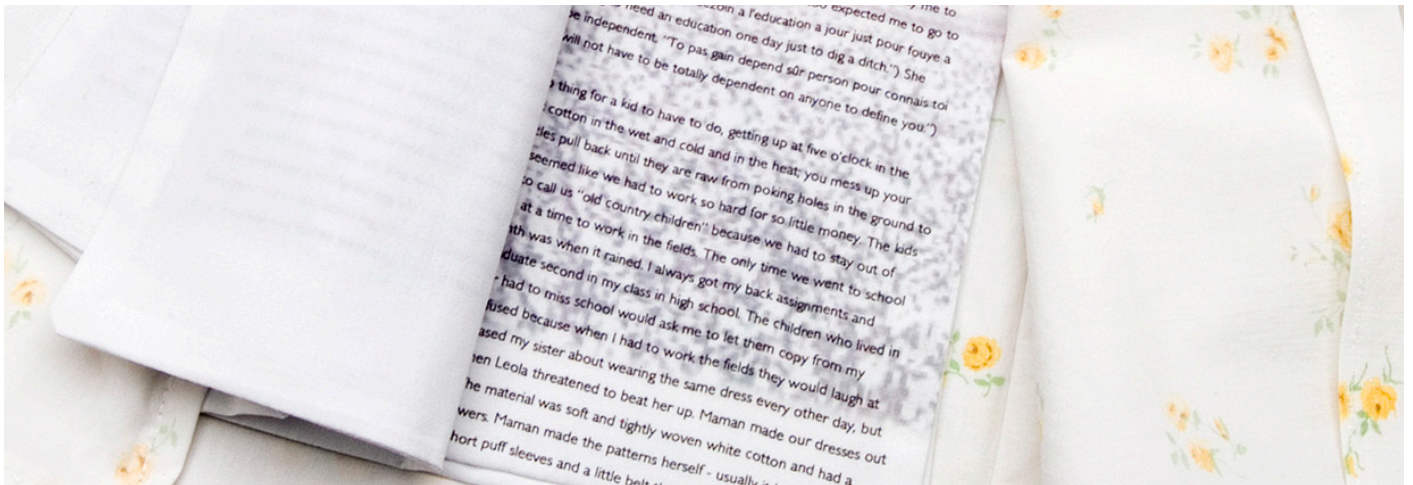 me to
expected me to go to
need an education a l'education a jour just pour fouye a
be independent. "To pas gain depend sûr person pour connais toi
will not have to be totally dependent on anyone to define you.")
thing for a kid to have to do, getting up at five o'clock in the
cotton in the wet and cold and in the heat; you mess up your
pull back until they are raw from poking holes in the ground to
seemed like we had to work so hard for so little money. The kids
to call us "old country children" because we had to stay out of
at a time to work in the fields. The only time we went to school
was when it rained. I always got my back assignments and
second in my class in high school. The children who lived in
had to miss school would ask me to let them copy from my
because when I had to work the fields they would laugh at
my sister about wearing the same dress every other day, but
Leola threatened to beat her up. Maman made our dresses out
material was soft and tightly woven white cotton and had a
Maman made the patterns herself - usually
puff sleeves and a little